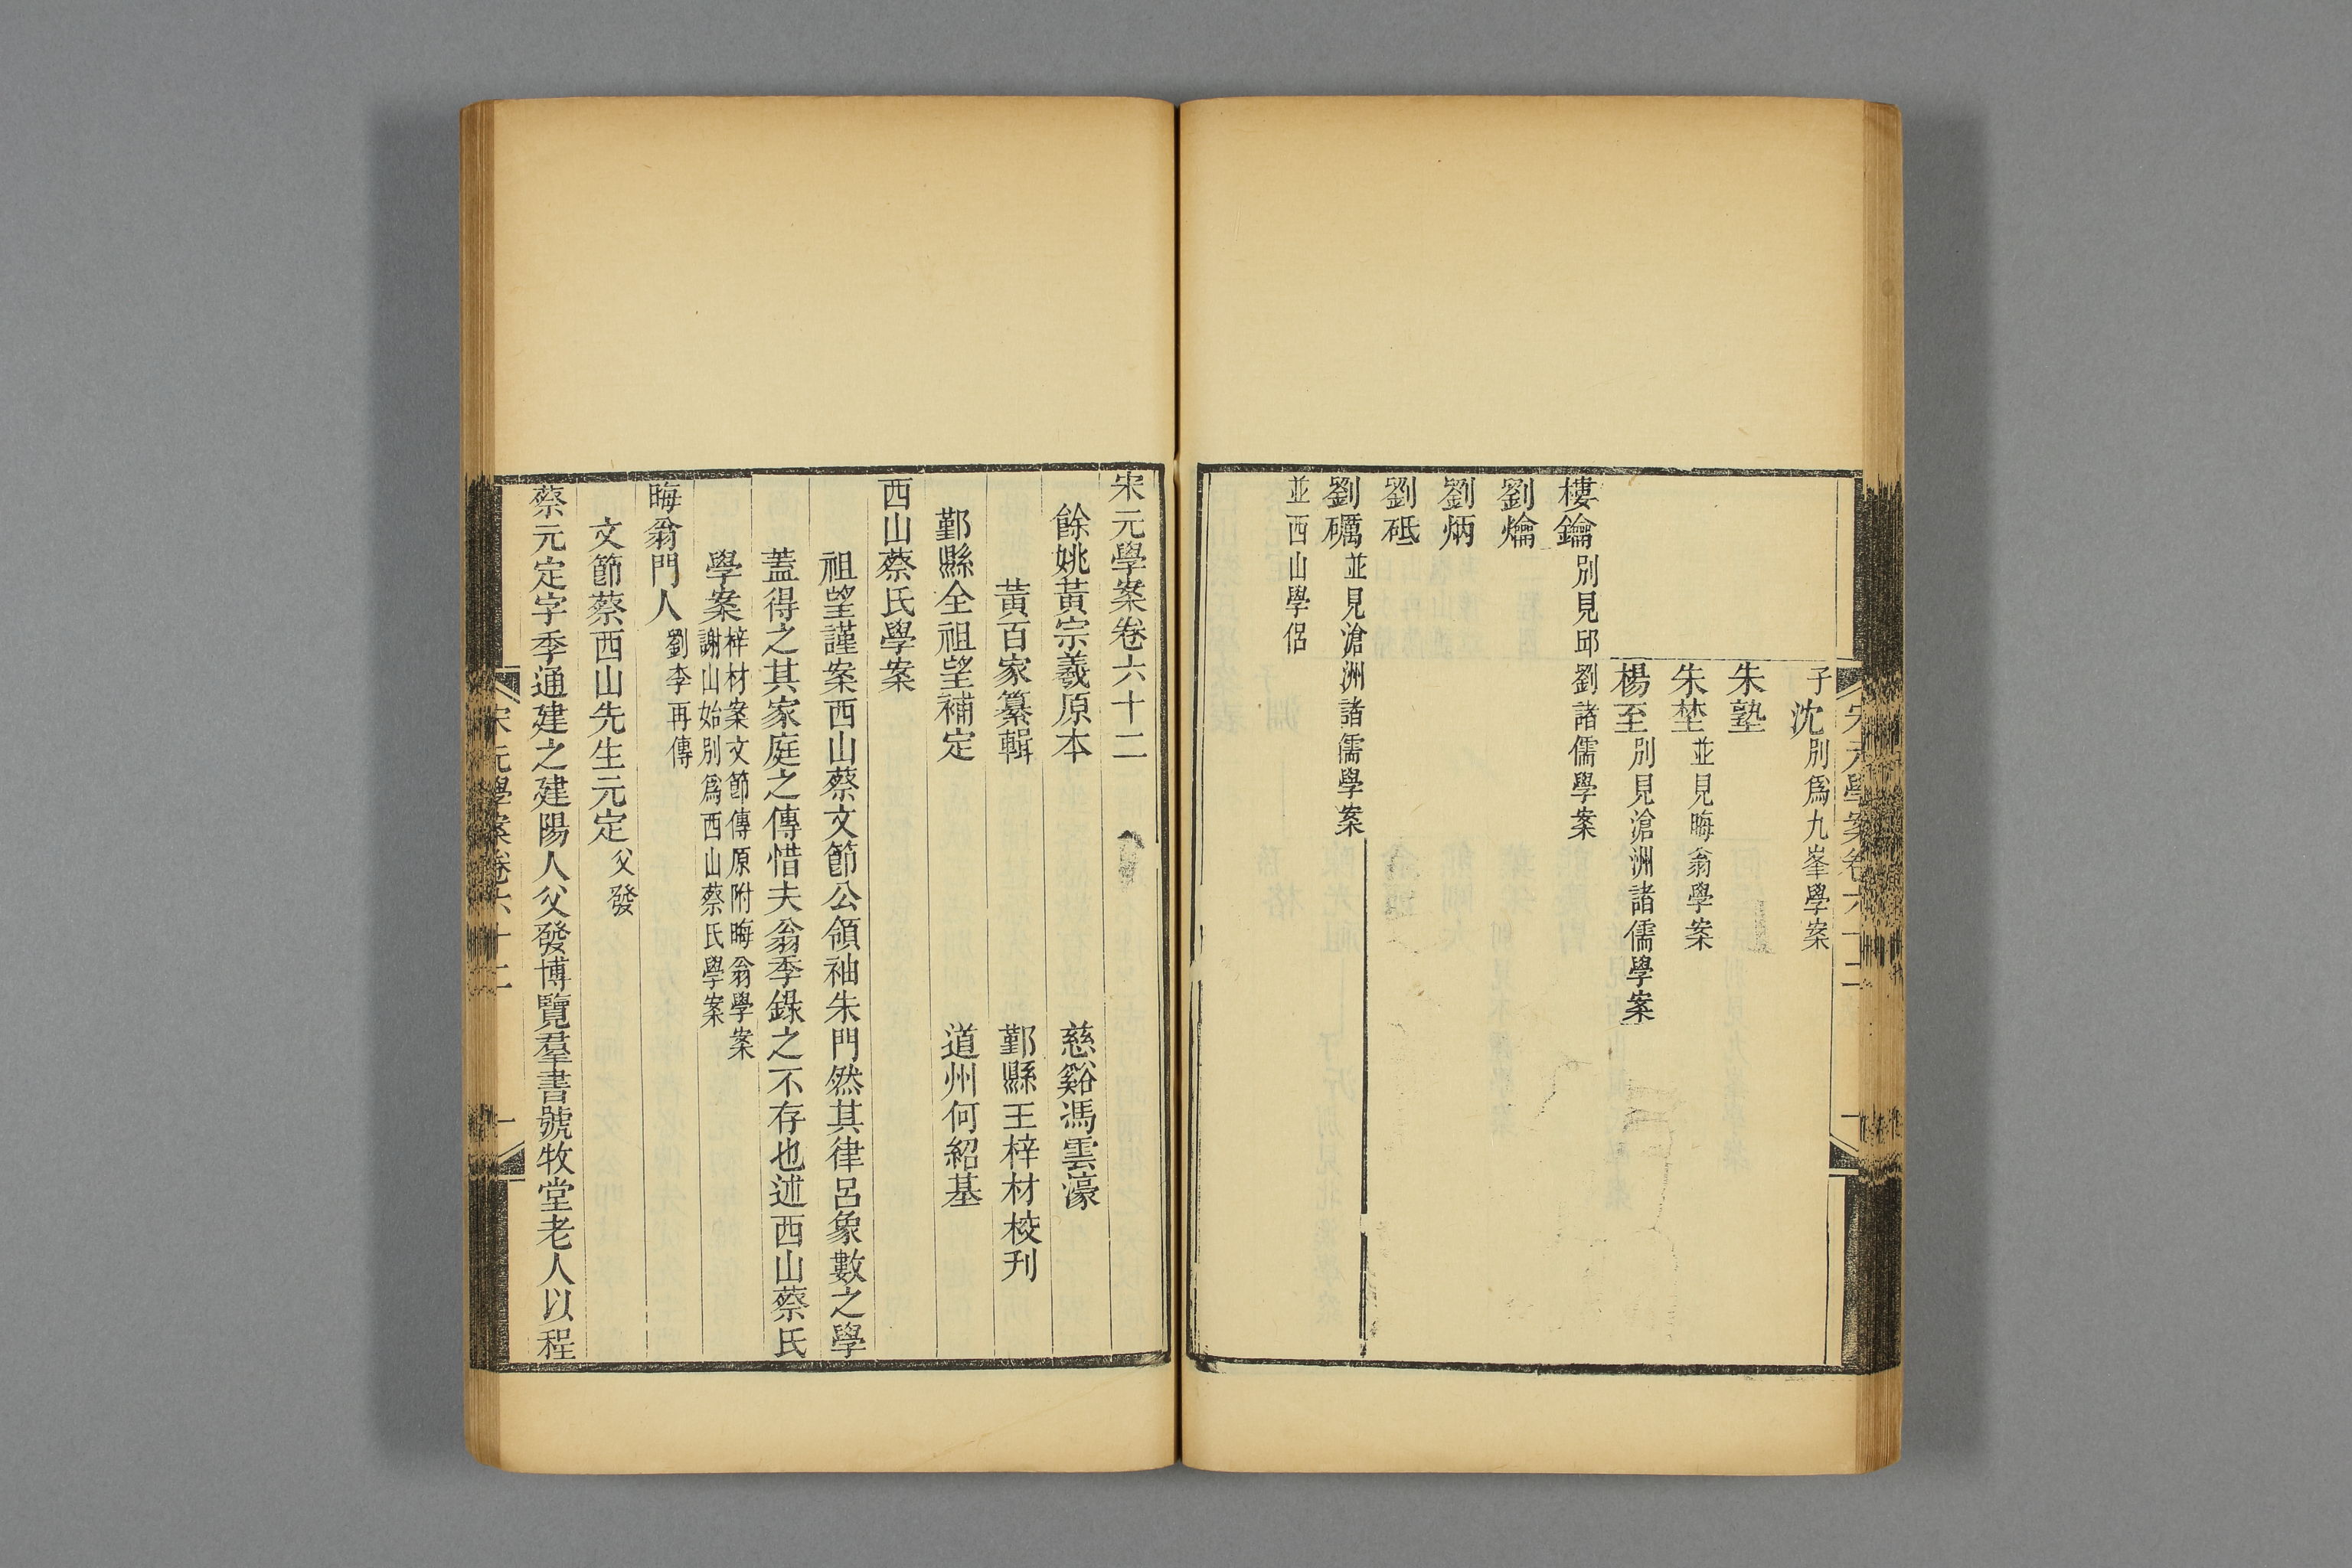 子沈別爲九峯學案
朱塾
朱埜並見晦翁學案
楊至別見滄洲諸儒學案
樓鑰別見邱劉諸儒學案
劉爚
劉炳
劉砥
劉礪並見滄洲諸儒學案
並西山學侶
宋元學案卷六十二
餘姚黃宗羲原本 慈谿馮雲濠
黃百家纂輯 鄞縣王梓材校刊
鄞縣全祖望補定 道州何紹基
西山蔡氏學案
祖望謹案西山蔡文節公領袖朱門然其律呂象數之學
蓋得之其家庭之傳惜夫翁季錄之不存也述西山蔡氏
學案梓材案文節傳原附晦翁學案
謝山始別爲西山蔡氏學案
晦翁門人劉李再傳
文節蔡西山先生元定父發
蔡元定字季通建之建陽人父發博覽羣書號牧堂老人以程
宋元學案卷六十二 一